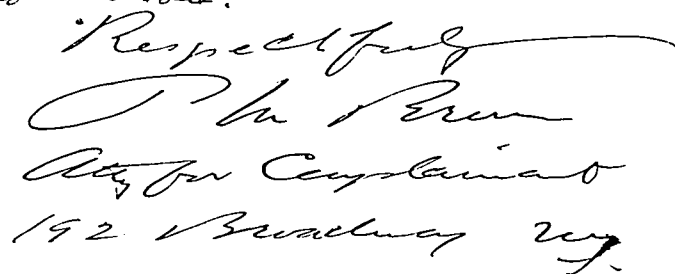 Respectfully
P M Brown
Atty for Complainant
192 Broadway NY.